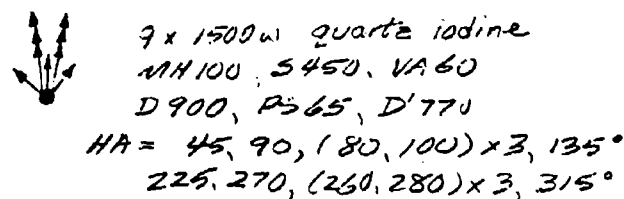 9 x 1500w quartz iodine
MH100, S450, VA60
D900, PS65, D'770
HA = 45, 90, (80, 100) x 3, 135°
225, 270, (260, 280) x 3, 315°